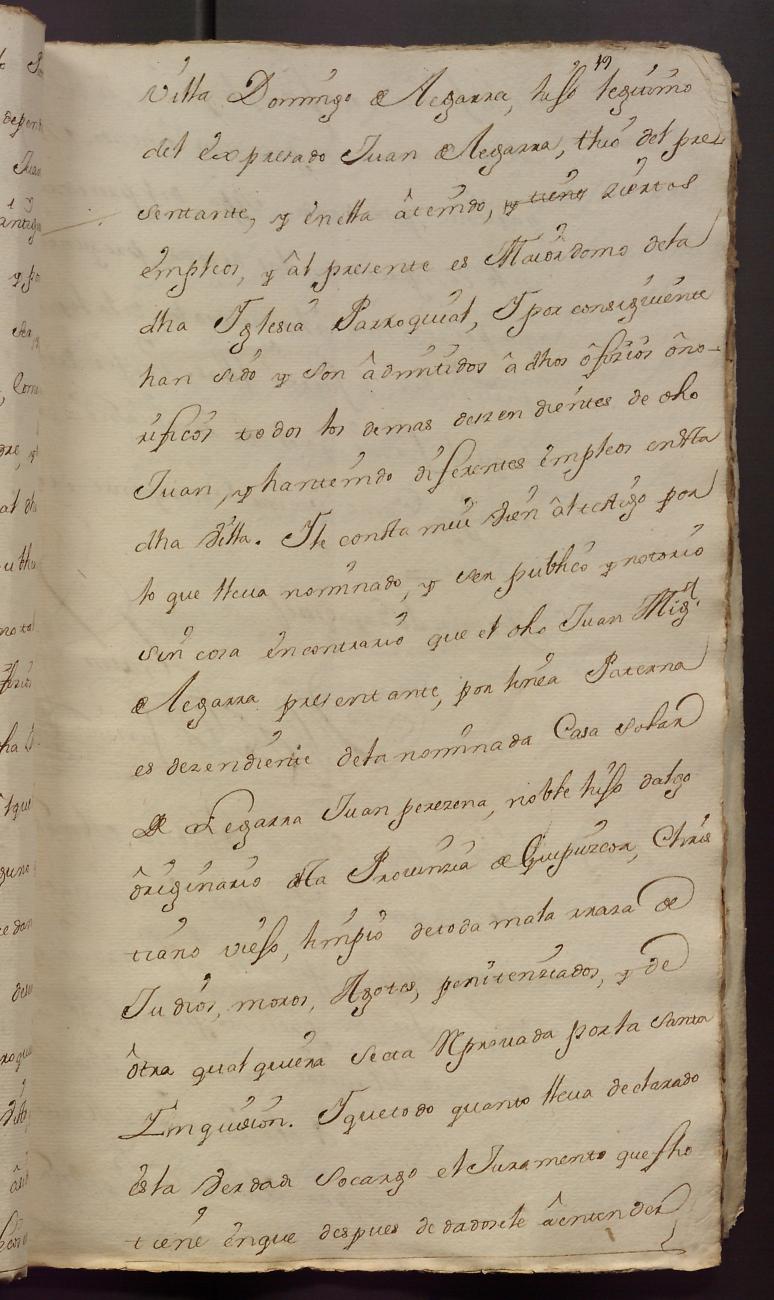 19
villa Domingo de Legarra, hijo legitimo
del expresado Juan de Legarra, thio del pre
sentante, y enella â tenido, y tiene ziertos
êmpleos, y âl presente es Maiordomo dela
dha Iglesia Parroquial, Y por consiguiente
han sido y son âdmitidos â dhos ôfizios ôno-
rificos todos los demas deszendientes de dho
Juan, y hantenido diferentes êmpleos endsta
dha villa. Yle consta mui vien âltestigo por
lo que lleva nominado, y ser publico y notorio
sin cosa encontrario que el dho Juan Migl
de Legarra presentante, por linea Paterna
es dezendiente dela nominada Casa solar
De Legarra Juan perezena, noble hijo dalgo
ôriginario dela Provinzia de Guipuzcoa, Chris
tiano viejo, limpio detoda mala rraza de
Judios, moros, Agotes, penitenziados, y de
ôtra qual quiera secta Rprovada por la santa
Inquision. Yquetodo quanto lleva declarado
ês la verdad socargo el Juramento que fho
tiene ênque despues de dadosele âentender